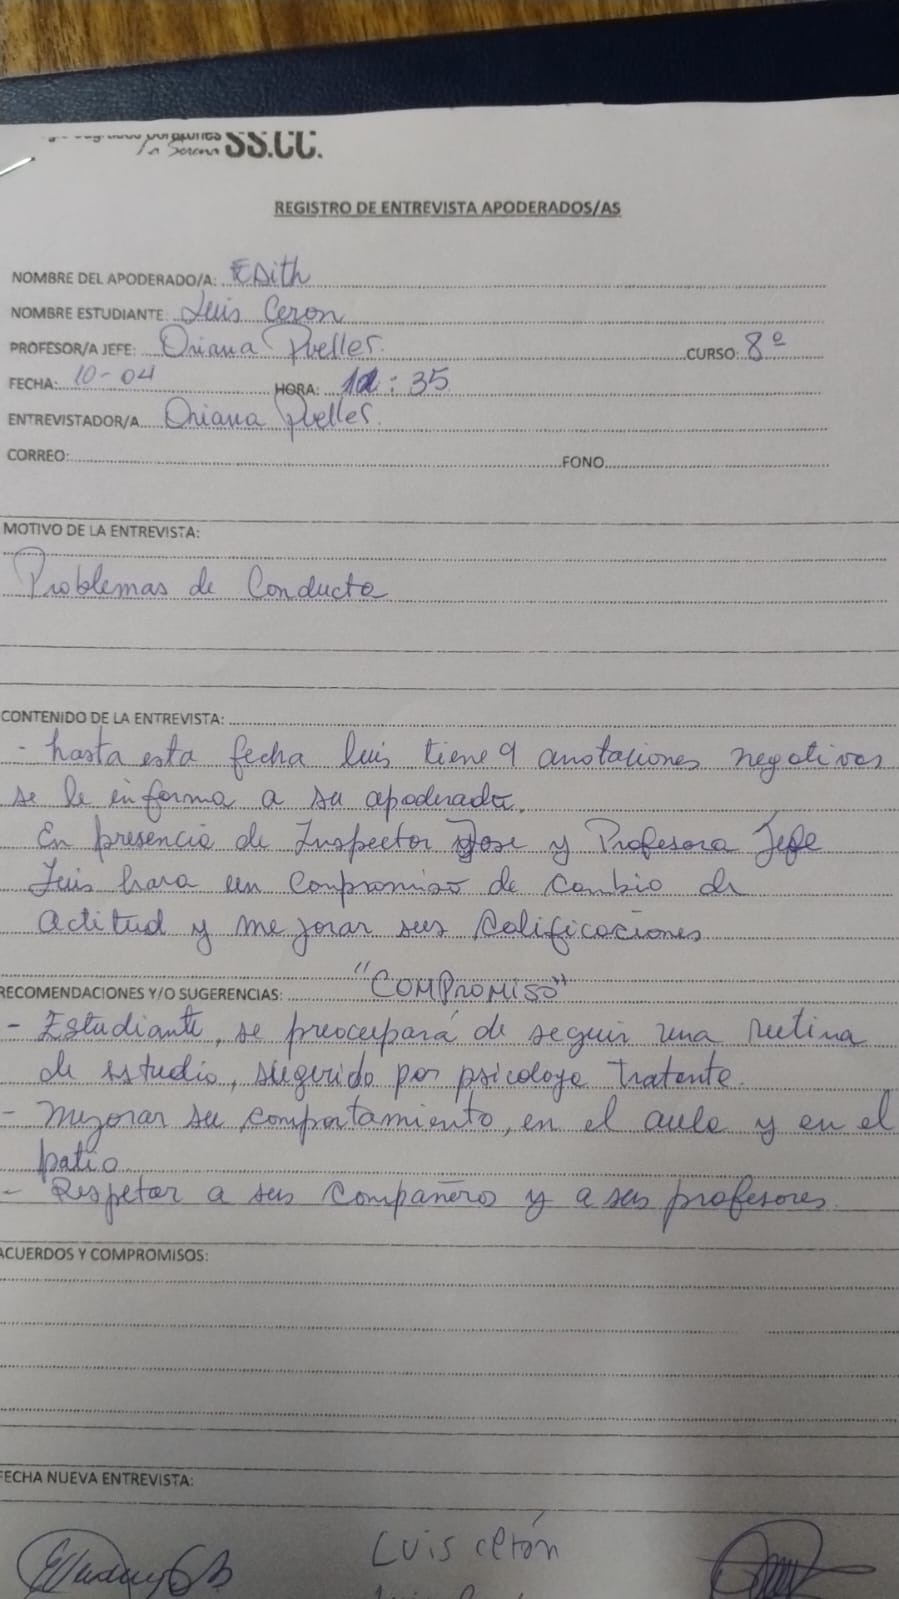 La Serena SS.CC.
REGISTRO DE ENTREVISTA APODERADOS/AS
NOMBRE DEL APODERADO/A: Edith
NOMBRE ESTUDIANTE: Luis Ceron
PROFESOR/A JEFE: Oriana CURSO: 8º
FECHA: 10-04 HORA: : 35
ENTREVISTADOR/A Oriana
CORREO: FONO
MOTIVO DE LA ENTREVISTA:
Problemas de Conducta
CONTENIDO DE LA ENTREVISTA:
- hasta esta fecha luis tiene 9 anotaciones negativas
se le informa a su apoderada.
En presencia de Inspector Jose y Profesora Jefe
Luis hara un compromiso de cambio de
actitud y mejorar sus Calificaciones
RECOMENDACIONES Y/O SUGERENCIAS: "COMPROMISO"
- Estudiante, se preocupará de seguir una rutina
de estudio, sugerido por psicologa tratante.
- Mejorar su comportamiento, en el aula y en el
patio
- Respetar a sus compañeros y a sus profesores.
ACUERDOS Y COMPROMISOS:
FECHA NUEVA ENTREVISTA:
Luis cerón